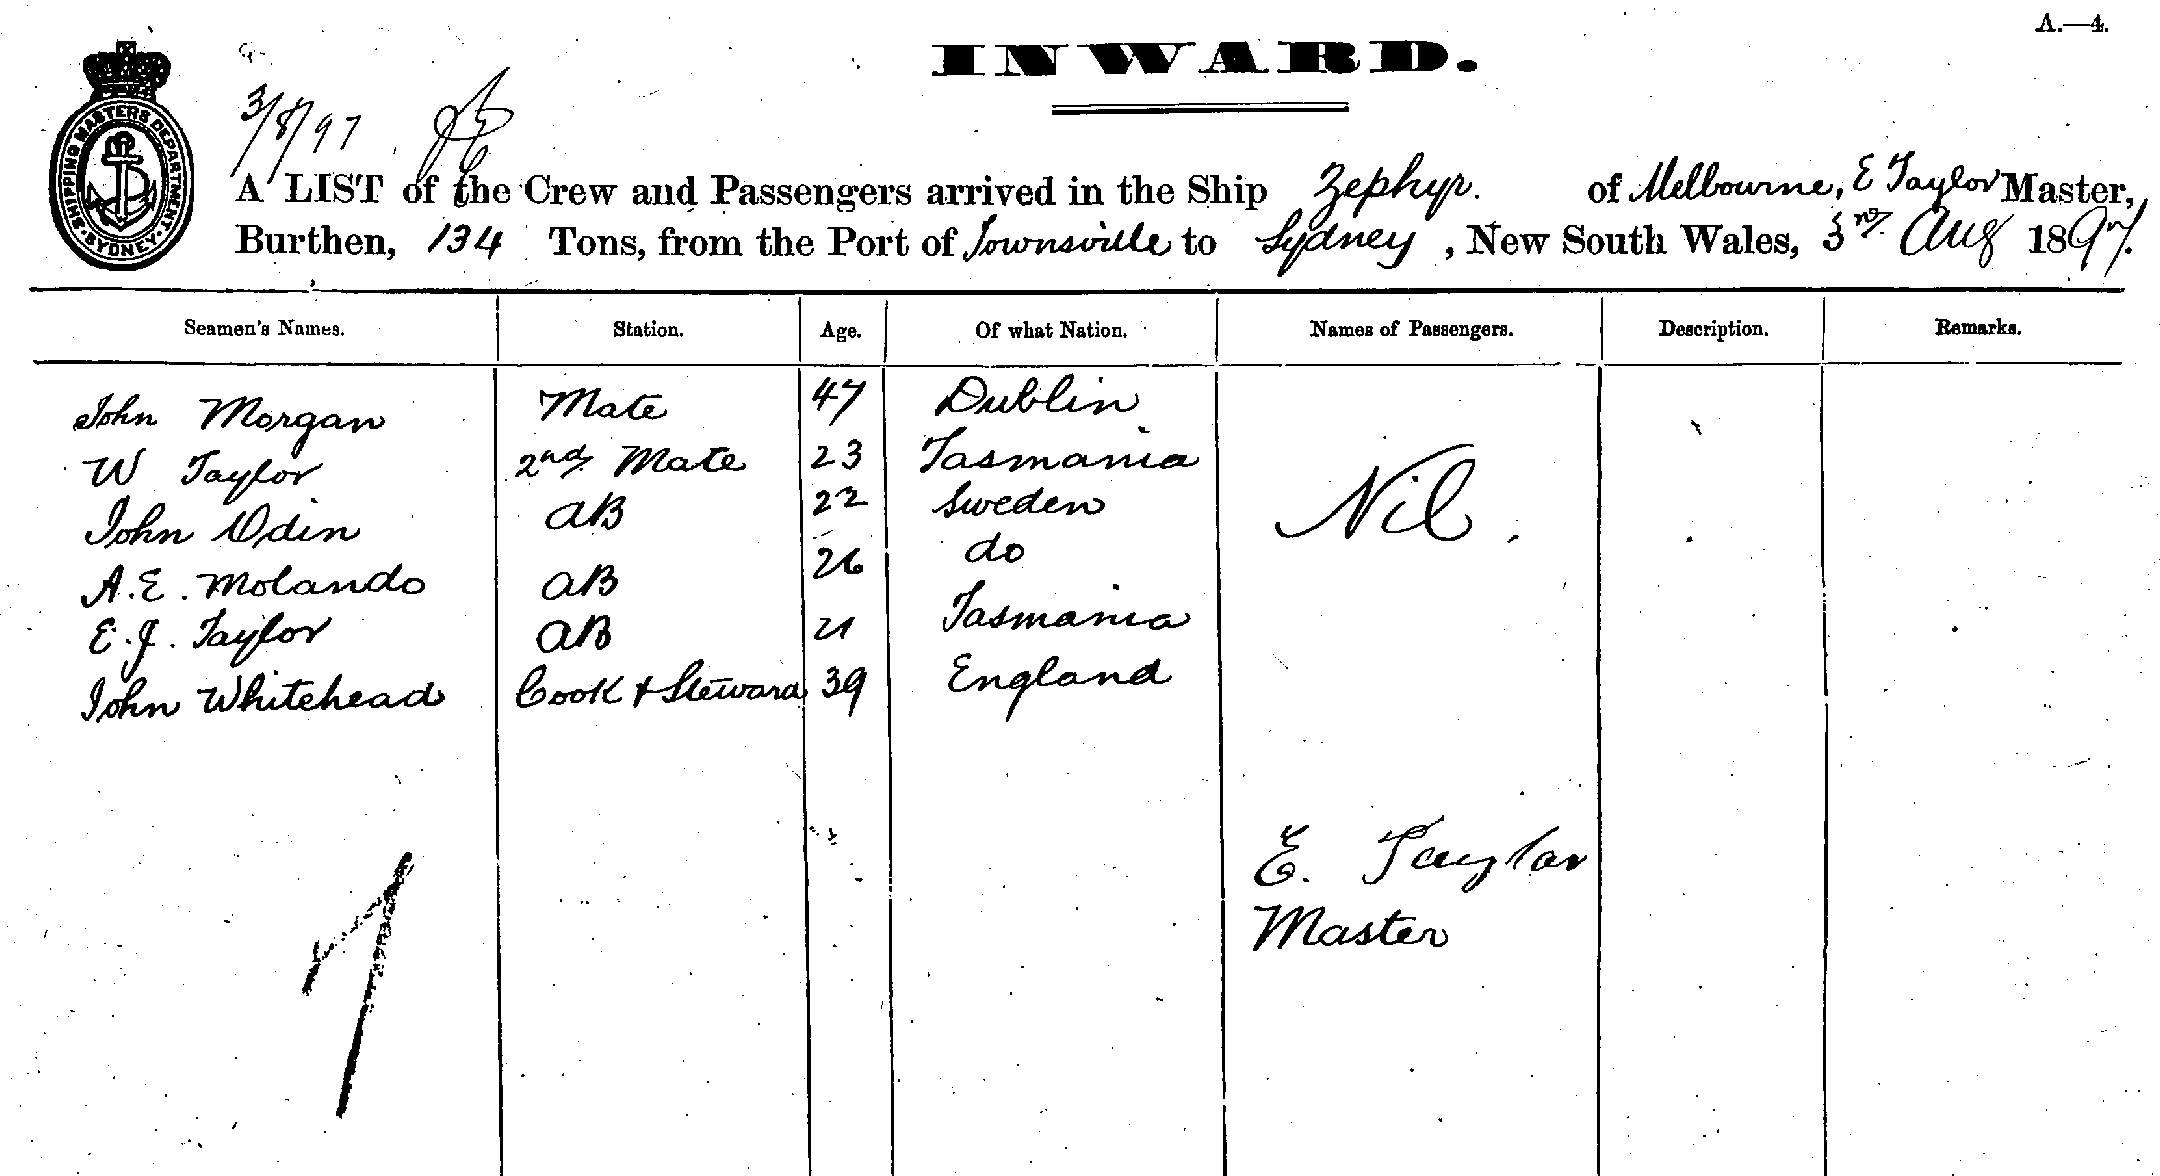 A.—4.
INWARD.
SHIPPING MASTERS DEPARTMENT. SYDNEY.
3/8/97
A LIST of the Crew and Passengers arrived in the Ship Zephyr. of Melbourne, E Taylor Master,
Burthen, 134 Tons, from the Port of Townsville to Sydney, New South Wales, 3rd Aug 1897.
Seamen's Names. Station. Age. Of what Nation. Names of Passengers. Description. Remarks.
John Morgan Mate 47 Dublin
W Taylor 2nd Mate 23 Tasmania
John Odin AB 22 Sweden Nil.
A.E. Molando AB 26 do
E.J. Taylor AB 21 Tasmania
John Whitehead Cook & Steward 39 England
E. Taylor
Master
7